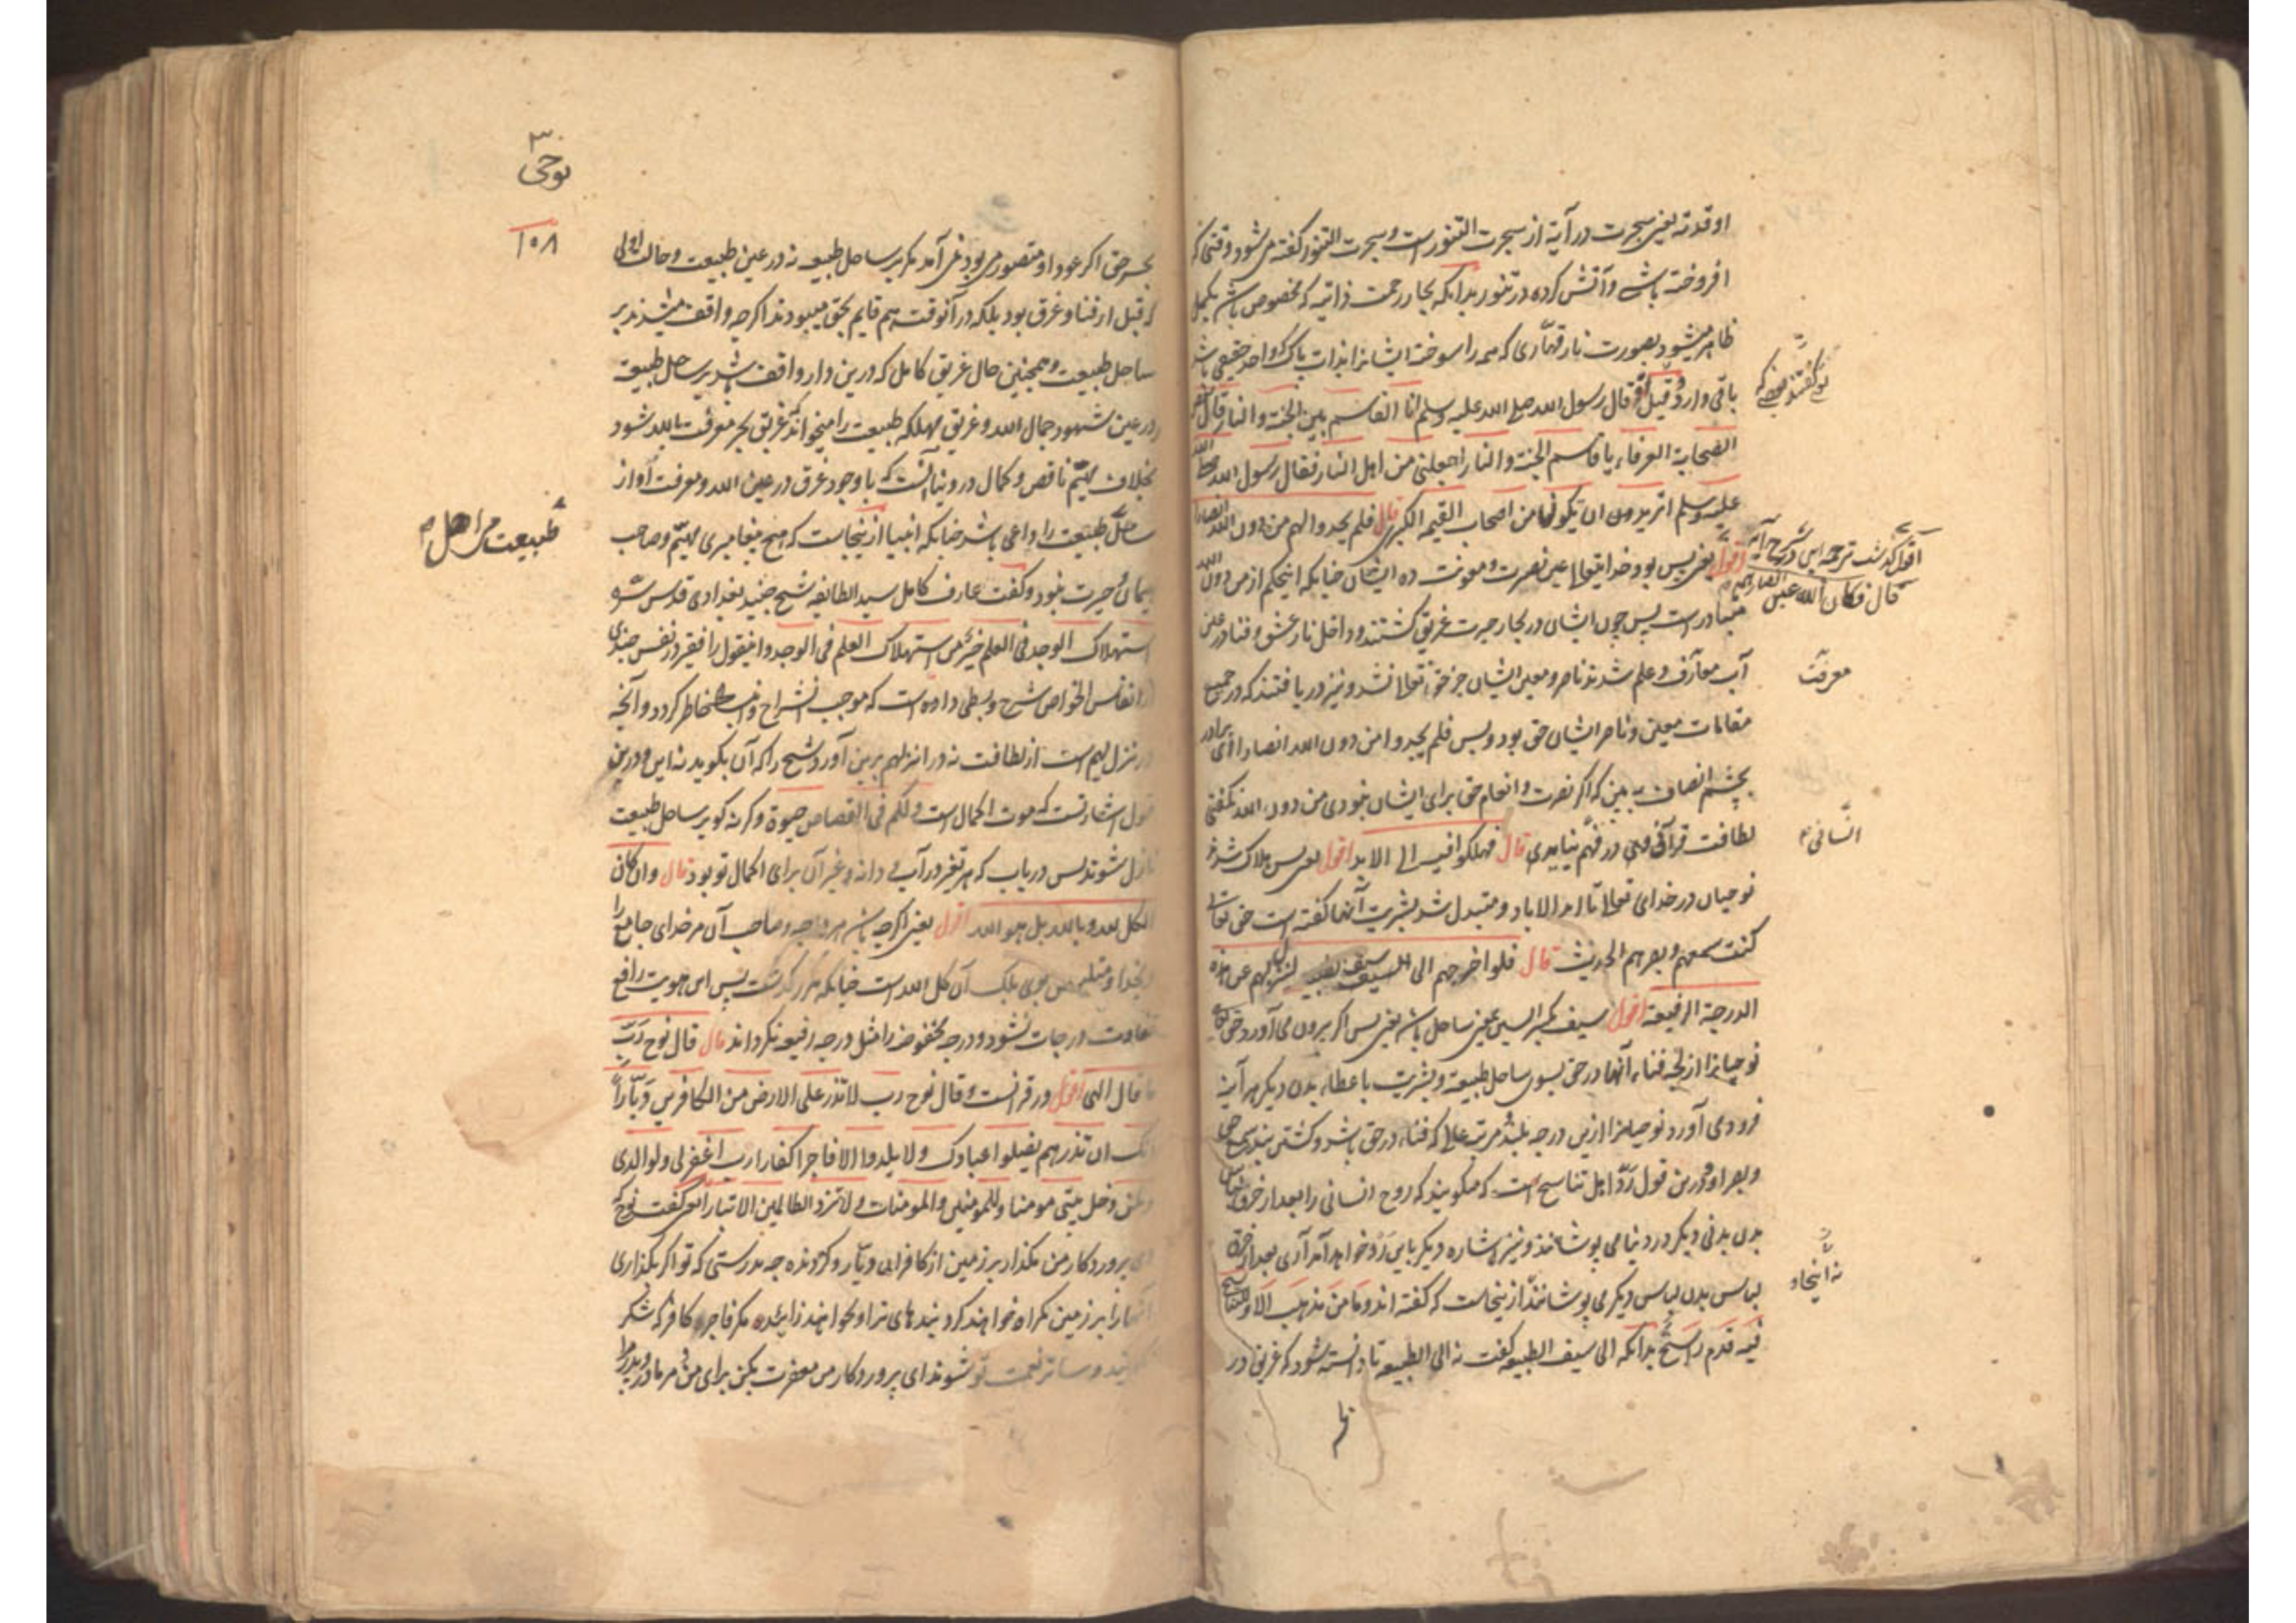 او قدته یعنی سجرت در آیة از سجرت التنور است و سجرت التنور گفته می شود وقتی که
افروخته باشی و آتش کرده در تنور بدانکه بحار رحمت ذاتیه که مخصوص باشد بکمل
ظاهر میشود بصورت نار قهاری که همه را سوخته ایشانرا بذات پاک که واحد حقیقی باشد
باقی دارد و قیل قال رسول الله صلی الله علیه وسلم انا القاسم بین الجنة والنار قال بعض
الصحابة العرفاء یا قاسم الجنة والنار اجعلنی من اهل النار فقال رسول الله صلی الله
علیه وسلم اتریدون ان یکونها من اصحاب القیمة الکبری قال فلم یجدوا لهم من دون الله انصارا
اقول یعنی پس بود خدایتعالی عین نصرت و معونت ده ایشان چنانکه اینحکم از من دون الله
متبادر است پس چون ایشان در بحار حیرت غریق گشتند و داخل نار عشق و فنا در عین
آب معارف و علم شدند ناصر و معین ایشان جز حق تعالی نشد و نیز دریافتند که در جمیع
مقامات معین و ناصر ایشان حق بود و بس فلم یجدوا من دون الله انصارا ای برادر
بچشم انصاف به بین که اگر نصرت و انعام حق برای ایشان نبودی من دون الله نگفتی
لطافت قرآنی وهی در فهم نیایدی قال فهلکوا فیه الی الابد اقول یعنی پس هلاک شدند
نوحیان در خدای تعالی تا ابد الاباد و متبدل شد بشریت آنها گفته است حق تعالی
کنت سمعهم و بصرهم الحدیث قال فلو اخرجهم الی السیف سیف الطبیعة لنزل بهم عن هذه
الدرجة الرفیعة اقول سیف بکسر السین بمعنی ساحل باشد یعنی پس اگر برون می آورد حق تعالی
نوحیانرا از لجه فناء آنها در حق بسوی ساحل طبیعة و بشریت باعطاء بدن دیگر هر آینه
فرودی آورد نوحیانرا ازین درجه بلند مرتبه علیا که فناء در حق باشد و گشتن بنده سمع حق
و بصر او و درین قول رد اهل تناسخ است که میگویند که روح انسانی را بعد از خرق لباس
بدن بدنی دیگر در دنیا می پوشانند و نیز اشاره دیگر باین رد خواهد آمد آری بعد از خرق
لباس بدن لباس دیگر می پوشانند از اینجاست که گفته اند و ما من مذهب الا و للتناسخ
فیه قدم راسخ بدانکه الی سیف الطبیعة گفت نه الی الطبیعة تا دانسته شود که غریق در
نوع گفتند بعضی که
اقول گذشت ترجمه این در شرح آیه
قال فکان الله عین انصارهم
معرفت
انسانی
نه اینجا
نوحی
۱۵۸
بحر حق اگر عود او متصور می بود نمی آمد مگر بر ساحل طبیعة نه در عین طبیعت و حالت اولی
که قبل از فنا و غرق بود بلکه در آنوقت هم قایم بحق میبودند اگرچه واقف میشدند بر
ساحل طبیعت و همچنین حال غریق کامل که درین دار واقف شد بر ساحل طبیعة
در عین شهود جمال الله و غریق مهلکه طبیعت را میخواند که غریق بحر معرفت بالله شود
بخلاف مهیم ناقص و کمال در دنیا آنست که با وجود غرق در عین الله و معرفت او از
ساحل طبیعت را داعی باشد چنانکه انبیا ازینجاست که هیچ پیغامبری مهیم و صاحب
هیمان و حیرت نبود و گفت عارف کامل سید الطایفه شیخ جنید بغدادی قدس سره
استهلاک الوجد فی العلم خیر من استهلاک العلم فی الوجد و اینقول را فقیر در نفس جنیدی
از انفاس الخواص شرح و بسطی داده است که موجب انشراح و انبساط خاطر گردد و آنچه
در نزل بهم است از لطافت نه در انزلهم برین آورد شیخ را که آن بگوید نه این و درین
قول اشارتست که موت اکمال است ولکم فی القصاص حیوة و گرنه گو بر ساحل طبیعت
نازل شوند پس دریاب که هر تغیر در آب و دانه و غیر آن برای اکمال تو بود قال وان کان
الکل لله و بالله بل هو الله اقول یعنی اگرچه باشد هر درجه و صاحب آن مر خدای جامع را
پس این هویت رافع
تفاوت درجات نشود و درجه مخفوضه را مثل درجه رفیعه نگرداند قال قال نوح رب
ما قال الهی اقول در قرانست وقال نوح رب لا تذر علی الارض من الکافرین دیارا
انک ان تذرهم یضلوا عبادک ولا یلدوا الا فاجرا کفارا رب اغفر لی ولوالدی
ولمن دخل بیتی مومنا وللمومنین والمومنات ولا تزد الظالمین الا تبارا یعنی گفت نوح که
ای پروردگار من مگذار بر زمین از کافران دیار و گردنده چه بدرستی که تو اگر بگذاری
آنها را بر زمین گمراه خواهند کرد بندهای ترا و نخواهند زائید مگر فاجر و کافر که شکر
نکنند و ساتر نعمت تو شوند ای پروردگار من مغفرت بکن برای من و مر مادر و پدر مرا
طبیعت مر اهل